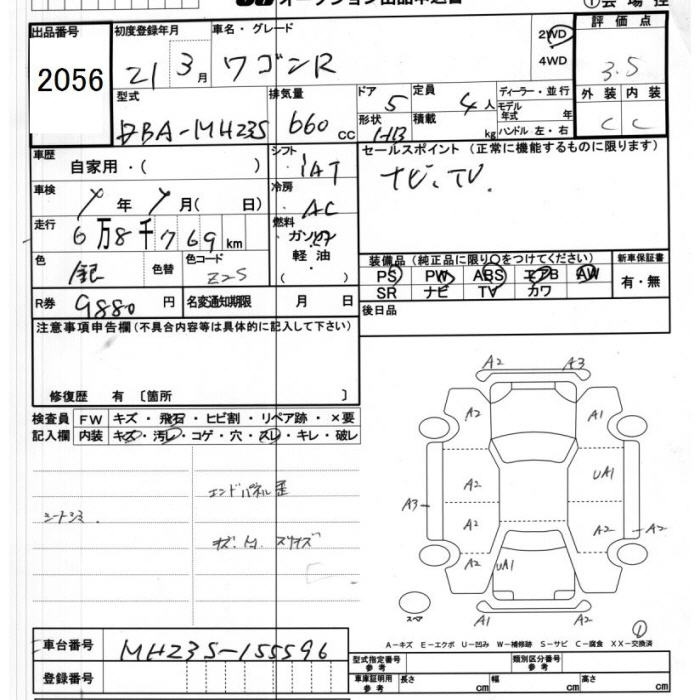 オークション出品申込書
①会場控
出品番号 初度登録年月 車名・グレード 2WD 評価点
2056 21 3月 ワゴンR 4WD 3.5
型式 排気量 ドア 5 定員 4人 ディーラー・並行 外装 内装
DBA-MH23S 660cc 形状 HB 積載 kg モデル年式 年 C C
ハンドル 左・右
車歴 自家用・( ) シフト IAT セールスポイント (正常に機能するものに限ります)
車検 年 月( 日) 冷房 AC ナビ、TV
走行 6万8千769km 燃料 ガソリン 軽油・( )
装備品(純正品に限り○をつけてください) 新車保証書
色 銀 色替 色コード Z2S PS PW ABS エアB AW 有・無
SR ナビ TV カワ
R券 9880円 名変通知期限 月 日 後日品
注意事項申告欄(不具合内容等は具体的に記入して下さい)
修復歴 有〔箇所 〕
検査員 FW キズ・飛石・ヒビ割・リペア跡・×要
記入欄 内装 キズ・汚レ・コゲ・穴・スレ・キレ・破レ
エンドパネル歪
シートシミ.
A2 A3
A2 A1
A2 UA1
A3 A2 A2 A2
A2 UA1
A1 A2
スペア
①
A-キズ E-エクボ U-凹み W-補修跡 S-サビ C-腐食 XX-交換済
車台番号 MH23S-155596 型式指定番号 参考 類別区分番号 参考
登録番号 車庫証明用 参考 長さ cm 幅 cm 高さ cm